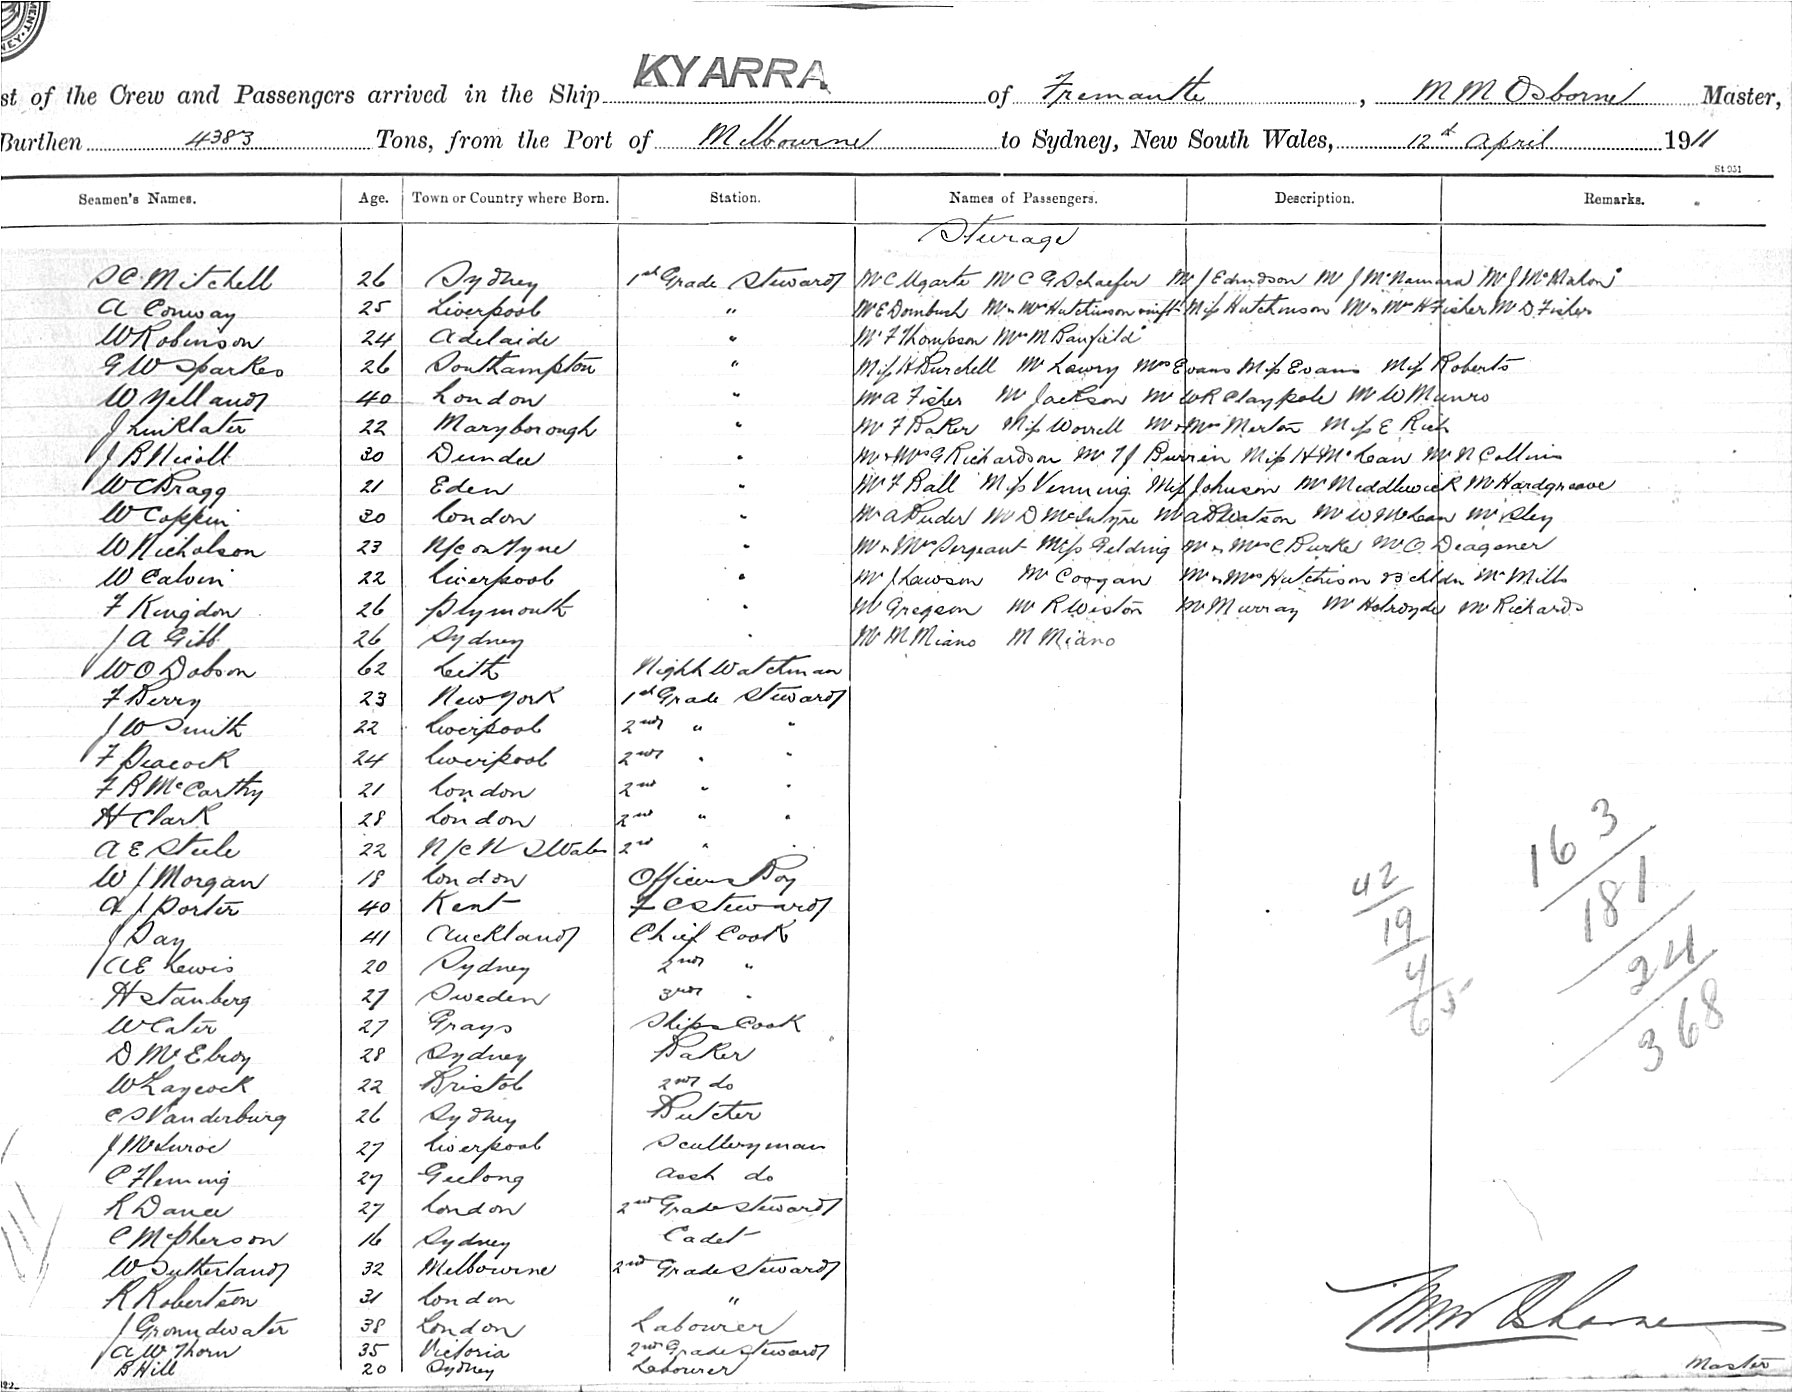 MENT. NEY.
st of the Crew and Passengers arrived in the Ship KYARRA of Fremantle, M M Osborne Master,
Burthen 4383 Tons, from the Port of Melbourne to Sydney, New South Wales, 12th April 1911
St 951
Seamen's Names. Age. Town or Country where Born. Station. Names of Passengers. Description. Remarks.
Sturage
S C Mitchell 26 Sydney 1st Grade Steward Mr C Ugarte Mr C G Schaefer Mr J Edmdson Mr J McNamara Mr J McMahon
A Conway 25 Liverpool " Mr E Dornbush Mr & Mrs Hutchinson & inft Miss Hutchinson Mr & Mrs H Fisher Mr D Fisher
W Robinson 24 Adelaide " Mr F Thompson Mrs M Banfield
G W Sparkes 26 Southampton " Miss H Burchell Mr Lowry Mrs Evans Miss Evans Miss Roberts
W Yelland 40 London " Mr A Fisher Mr Jackson Mr W R Claypole Mr W Munro
J Linklater 22 Maryborough " Mr F Baker Miss Worrell Mr & Mrs Merton Miss E Rich
J B Nicoll 30 Dundee " Mr & Mrs G Richardson Mr T J Burrin Miss H McLean Mr N Collins
W C Bragg 21 Eden " Mr F Ball Miss Venning Miss Johnson Mr Meddlewick Mr Hardgreave
W Coppin 30 London " Mr A Ruder Mr D McIntyre Mr A D Watson Mr W McLean Mr Sley
W Nicholson 23 N/c on Tyne " Mr & Mrs Sergeant Miss Gelding Mr & Mrs C Burke Mr O Deagener
W Calvin 22 Liverpool " Mr J Lawson Mr Coogan Mr & Mrs Hutchison & 3 chldn Mr Mills
F Kingdon 26 Plymouth " Mr Gregson Mr R Weston Mr Murray Mr Holroyde Mr Richards
J A Gibb 26 Sydney " Mr M Miano M Miano
W O Dobson 62 Leith Night Watchman
F Berry 23 New York 1st Grade Steward
J W Smith 22 Liverpool 2nd " "
F Peacock 24 Liverpool 2nd " "
F B McCarthy 21 London 2nd " "
H Clark 28 London 2nd " "
A E Steele 22 N/c N S Wales 2nd " "
W J Morgan 18 London Officers Boy
A J Porter 40 Kent F C Steward
J Day 41 Auckland Chief Cook
A E Lewis 20 Sydney 2nd "
H Stanberg 27 Sweden 3rd "
W Cater 27 Grays Ships Cook
D McElroy 28 Sydney Baker
W Laycock 22 Bristol 2nd do
C S Vanderburg 26 Sydney Butcher
J 27 Liverpool Sculleryman
C Fleming 27 Geelong Asst do
R Dance 27 London 2nd Grade Steward
C McPherson 16 Sydney Cadet
W Sutherland 32 Melbourne 2nd Grade Steward
R Robertson 31 London "
J Groundwater 38 London Labourer
A W Thorn 35 Victoria 2nd Grade Steward
B Hill 20 Sydney Labourer
42
19
4
65
163
181
24
368
M M Osborne
Master